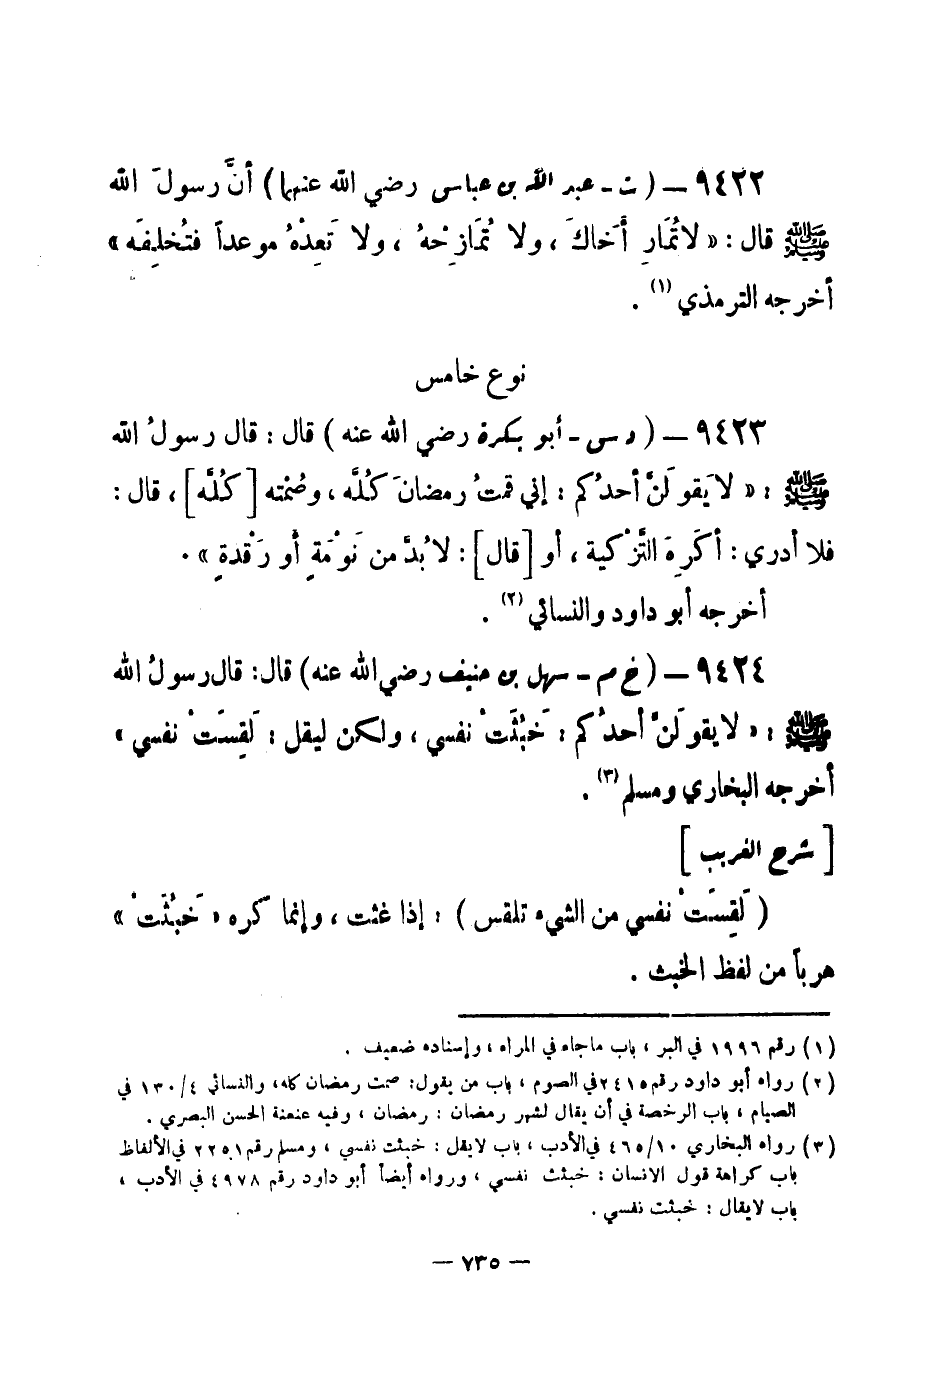 ٩٤٢٢ – ( ت - عبد الله بن عباس رضي الله عنهما ) أنَّ رسولَ الله
ﷺ قال : « لاتُمَارِ أَخاكَ ، ولا تُمَازِحْهُ ، ولا تَعِدْهُ موعداً فتُخلِفَه »
أخرجه الترمذي (١) .
نوع خامس
٩٤٢٣ – ( د س - أبو بكرة رضي الله عنه ) قال : قال رسولُ الله
ﷺ : « لا يَقولَنَّ أحدُكم : إني قمتُ رمضانَ كُلَّه ، وصُمْته [ كُلَّه ] ، قال :
فلا أدري : أكَرِهَ التَّزْكية ، أو [ قال ] : لا بُدَّ من نَوْمَةٍ أو رَقْدةٍ » .
أخرجه أبو داود والنسائي (٢) .
٩٤٢٤ – ( خ م - سهل بن حنيف رضي الله عنه ) قال : قال رسولُ الله
ﷺ : « لا يقولَنَّ أحدُكم : خَبُثَتْ نفسي ، ولكن ليقل : لَقِسَتْ نفسي »
أخرجه البخاري ومسلم (٣) .
[ شرح الغريب ]
( لَقِسَتْ نفسي من الشيء تلقس ) : إذا غثت ، وإنما كره « خَبُثَتْ »
هرباً من لفظ الخبث .
(١) رقم ١٩٩٦ في البر ، باب ماجاء في المراء ، وإسناده ضعيف .
(٢) رواه أبو داود رقم ٢٤١٥ في الصوم ، باب من يقول : صمت رمضان كله ، والنسائي ١٣٠/٤ في
الصيام ، باب الرخصة في أن يقال لشهر رمضان : رمضان ، وفيه عنعنة الحسن البصري .
(٣) رواه البخاري ٤٦٥/١٠ في الأدب ، باب لايقل : خبثت نفسي ، ومسلم رقم ٢٢٥١ في الألفاظ
باب كراهة قول الانسان : خبثت نفسي ، ورواه أيضاً أبو داود رقم ٤٩٧٨ في الأدب ،
باب لايقال : خبثت نفسي .
– ٧٣٥ –